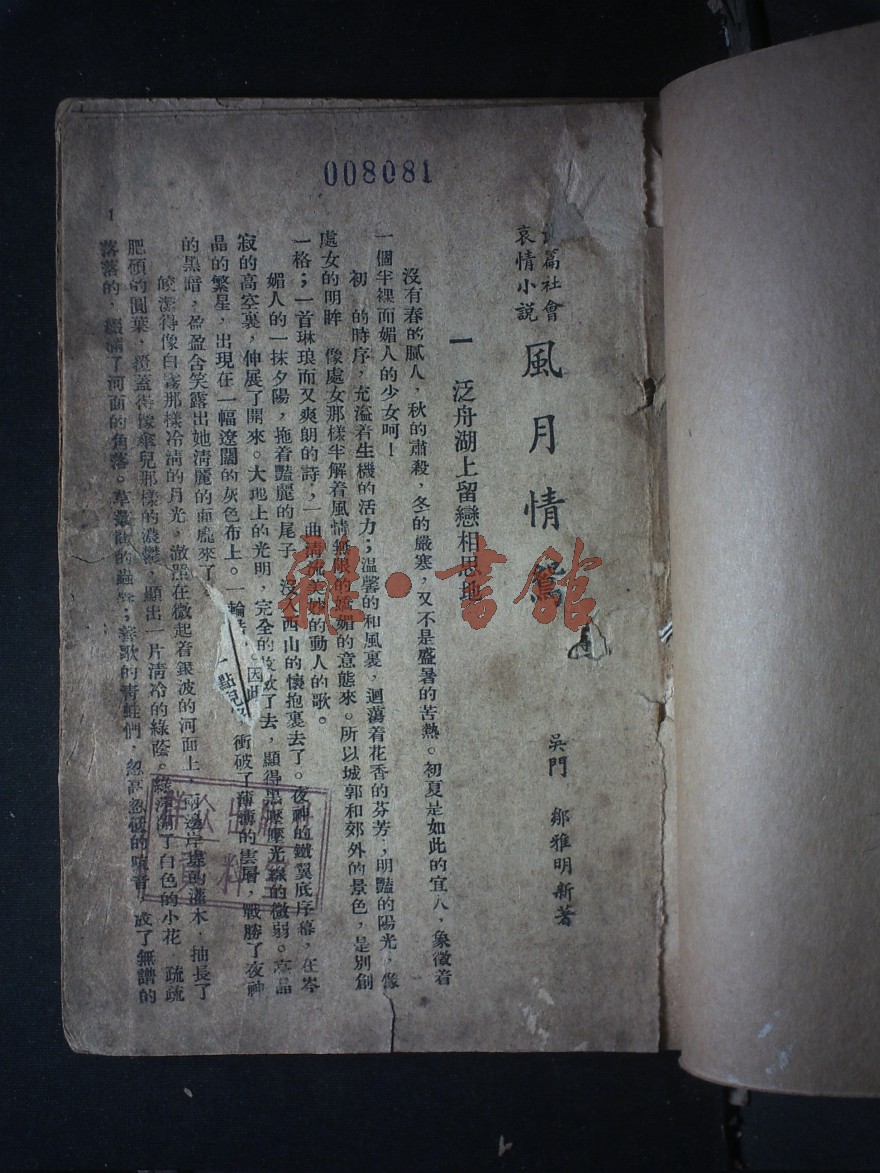 008081
篇社會
哀情小說
風月情鴛
吳門 鄒雅明新著
一 泛舟湖上留戀相思地
沒有春的膩人，秋的肅殺，冬的嚴寒，又不是盛暑的苦熱。初夏是如此的宜人，象徵着
一個半裸而媚人的少女呵！
初 的時序，充溢着生機的活力；溫馨的和風裏，迴蕩着花香的芬芳；明豔的陽光，像
處女的明眸 像處女那樣半解着風情無限的嬌媚的意態來。所以城郭和郊外的景色，是別創
一格；一首琳琅而又爽朗的詩，一曲清流美妙的動人的歌。
媚人的一抹夕陽，拖着豔麗的尾子 沒入西山的懷抱裏去了。夜神的鐵翼底序幕，在岑
寂的高空裏，伸展了開來。大地上的光明，完全的 了去，顯得黑 光線的微弱。亮晶
晶的繁星，出現在一幅遼闊的灰色布上。一輪 。因此 衝破了薄薄的雲層，戰勝了夜神
一點兒
的黑暗，盈盈含笑露出她清麗的面龐來了
皎潔得像白霧那樣冷清的月光，澈照在微起着銀波的河面上 兩邊岸 的灌木，抽長了
肥碩的圓葉，澄蓋得像傘兒那樣的濃鬱，顯出一片清冷的綠蔭。 了白色的小花 疏疏
落落的，綴滿了河面的角落。草叢 的蟲 ；善歌的青蛙們，忽高忽低的 音 成了無譜的
1
雜·書館
出版
料